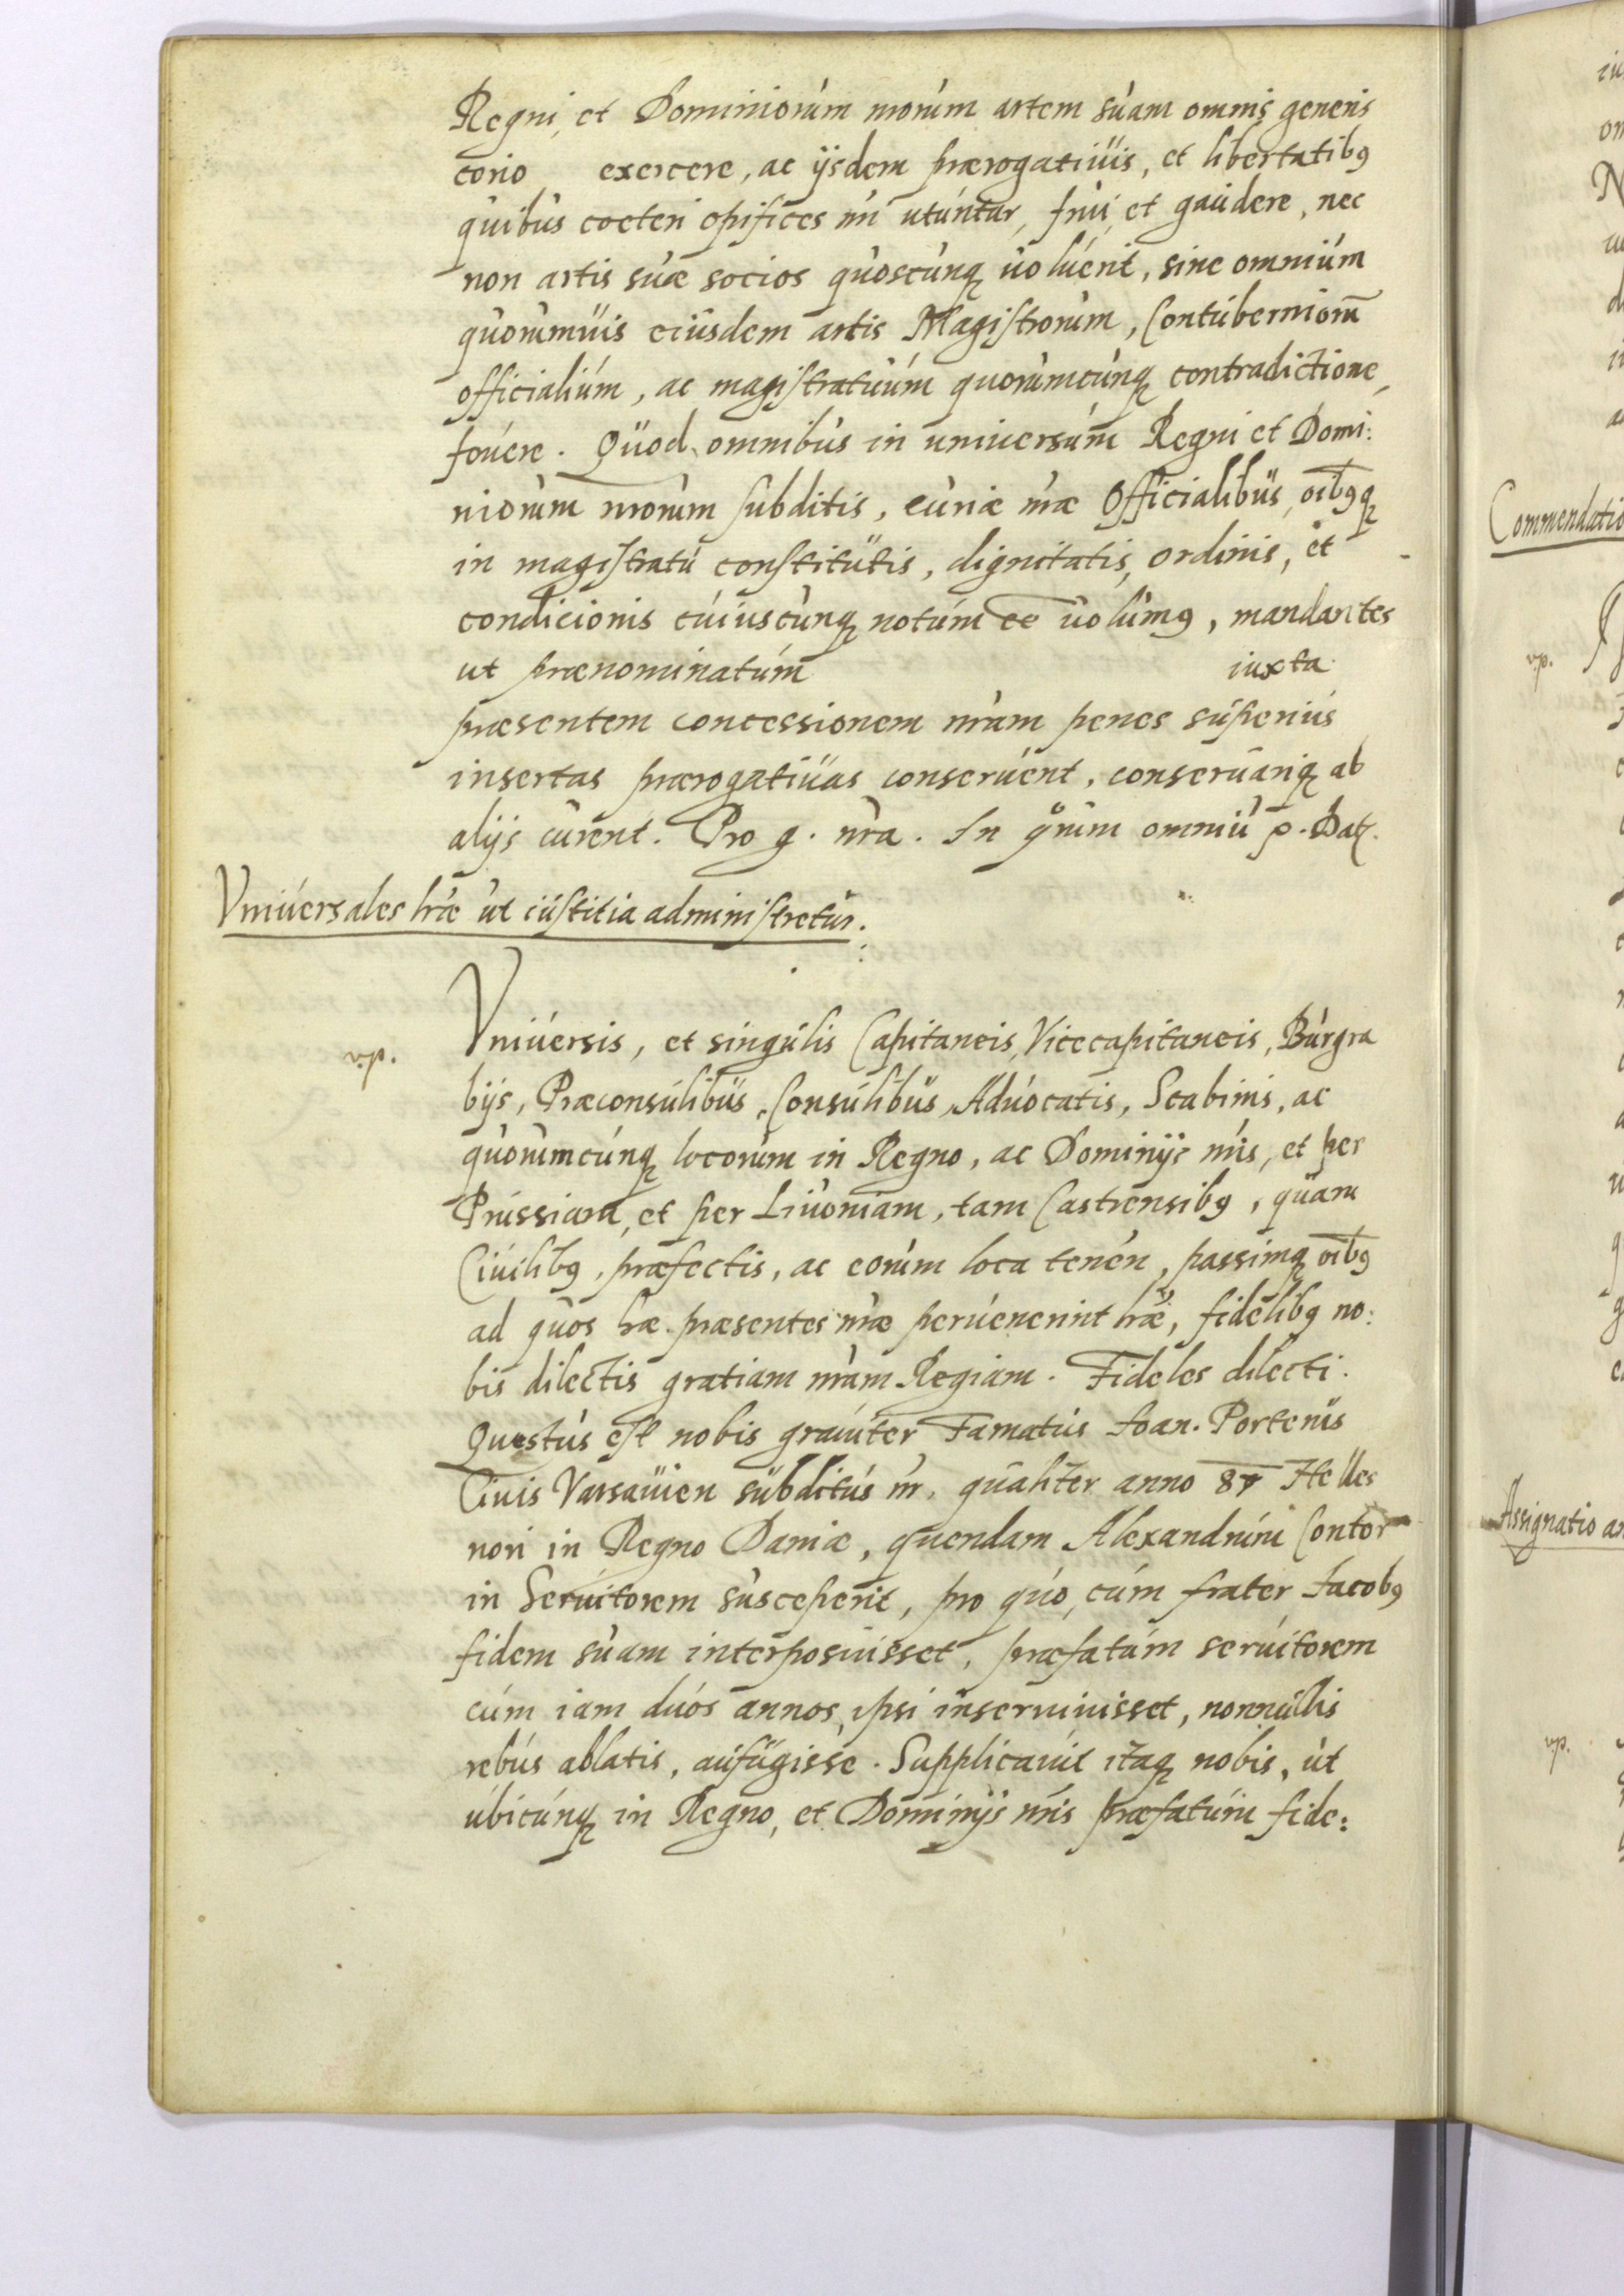 Regni, et Dominiorum nrorum artem suam omnis generis
corio exercere, ac ijsdem prærogatiuis, et libertatibꝰ
quibus coeteri opifices nri utuntur, frui, et gaudere, nec
non artis suæ socios quoscunqꝫ uoluerit, sine omnium
quorumuis eiusdem artis Magistrorum, Contuberniorū
officialium, ac magistratuum quorumcunqꝫ contradictione,
fouere. Quod omnibus in uniuersum Regni et Domi:
niorum nrorum subditis, curiæ nræ Officialibus, oībꝰqꝫ
in magistratu constitutis, dignitatis, ordinis, et
condicionis cuiuscunqꝫ notum ēe uolumꝰ, mandantes
ut prænominatum iuxta
præsentem concessionem nram penes superius
insertas prærogatiuas conseruent, conseruariqꝫ ab
alijs curent. Pro g. nra. In qrum omniu p. Datꝫ.
Vniuersales lræ ut iustitia administretur.
v.p.
Vniuersis, et singulis Capitaneis, Vicecapitaneis, Burgra
bijs, Præconsulibus, Consulibus, Aduocatis, Scabinis, ac
quorumcunqꝫ locorum in Regno, ac Dominijs nris, et per
Prussiam, et per Liuoniam, tam Castrensibꝰ, quam
Ciuilibꝰ, præfectis, ac eorum loca tenen, passimqꝫ oībꝰ
ad quos hæ præsentes nræ peruenerint lræ, fidelibꝰ no:
bis dilectis gratiam nram Regiam. Fideles dilecti.
Questus est nobis grauiter Famatus Ioan. Portenus
Ciuis Varsauien subditus nr, qualiter anno 87 Helles
nori in Regno Daniæ, quendam Alexandrum Contor
in Seruitorem susceperit, pro quo, cum frater Iacobꝰ
fidem suam interposuisset, præfatum seruitorem
cum iam duos annos, ipsi inseruiuisset, nonnullis
rebus ablatis, aufugisse. Supplicauit itaqꝫ nobis, ut
ubicunqꝫ in Regno, et Dominijs nris præfatum fide:
Commendatio
v.p.
Assignatio
v.p.